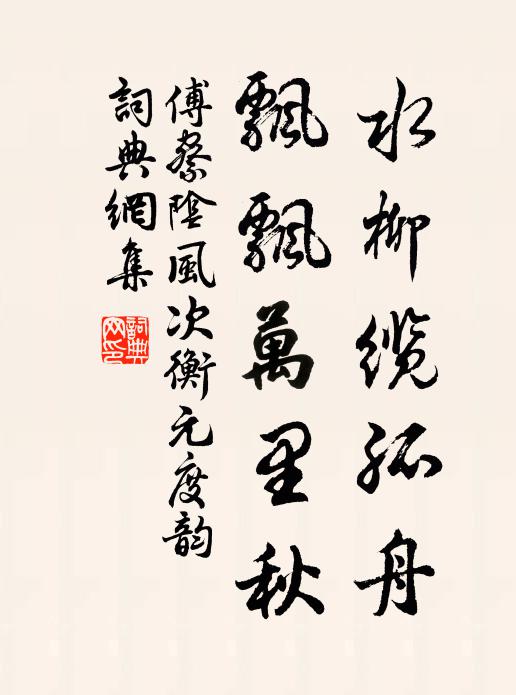 水柳纜孤舟
飄飄萬里秋
傅察陰風次衡元度韵
詞典網集
詞典网印